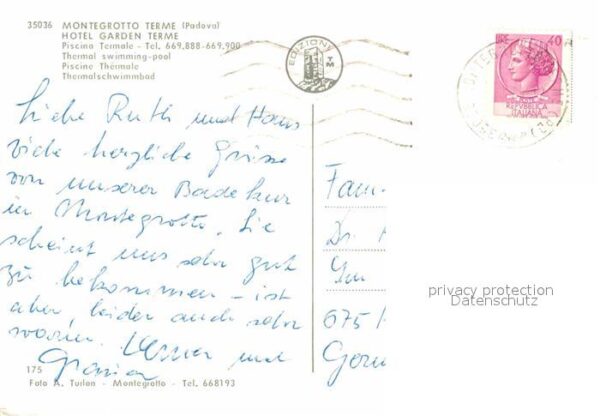 35036 MONTEGROTTO TERME (Padova)
HOTEL GARDEN TERME
Piscina Termale - Tel. 669.888-669.900
Thermal swimming-pool
Piscine Thermale
Thermalschwimmbad
EDIZIONI TM
LIRE 40
REPVBBLICA
ITALIANA
Liebe Ruth und Hans
viele herzliche Grüsse
von unserer Badekur
in Montegrotto. Sie
scheint uns sehr gut
zu bekommen - ist
aber, leider auch sehr
Werner und
Fam.
Dr.
675
privacy protection
Datenschutz
175
Foto A. Turlon - Montegrotto - Tel. 668193